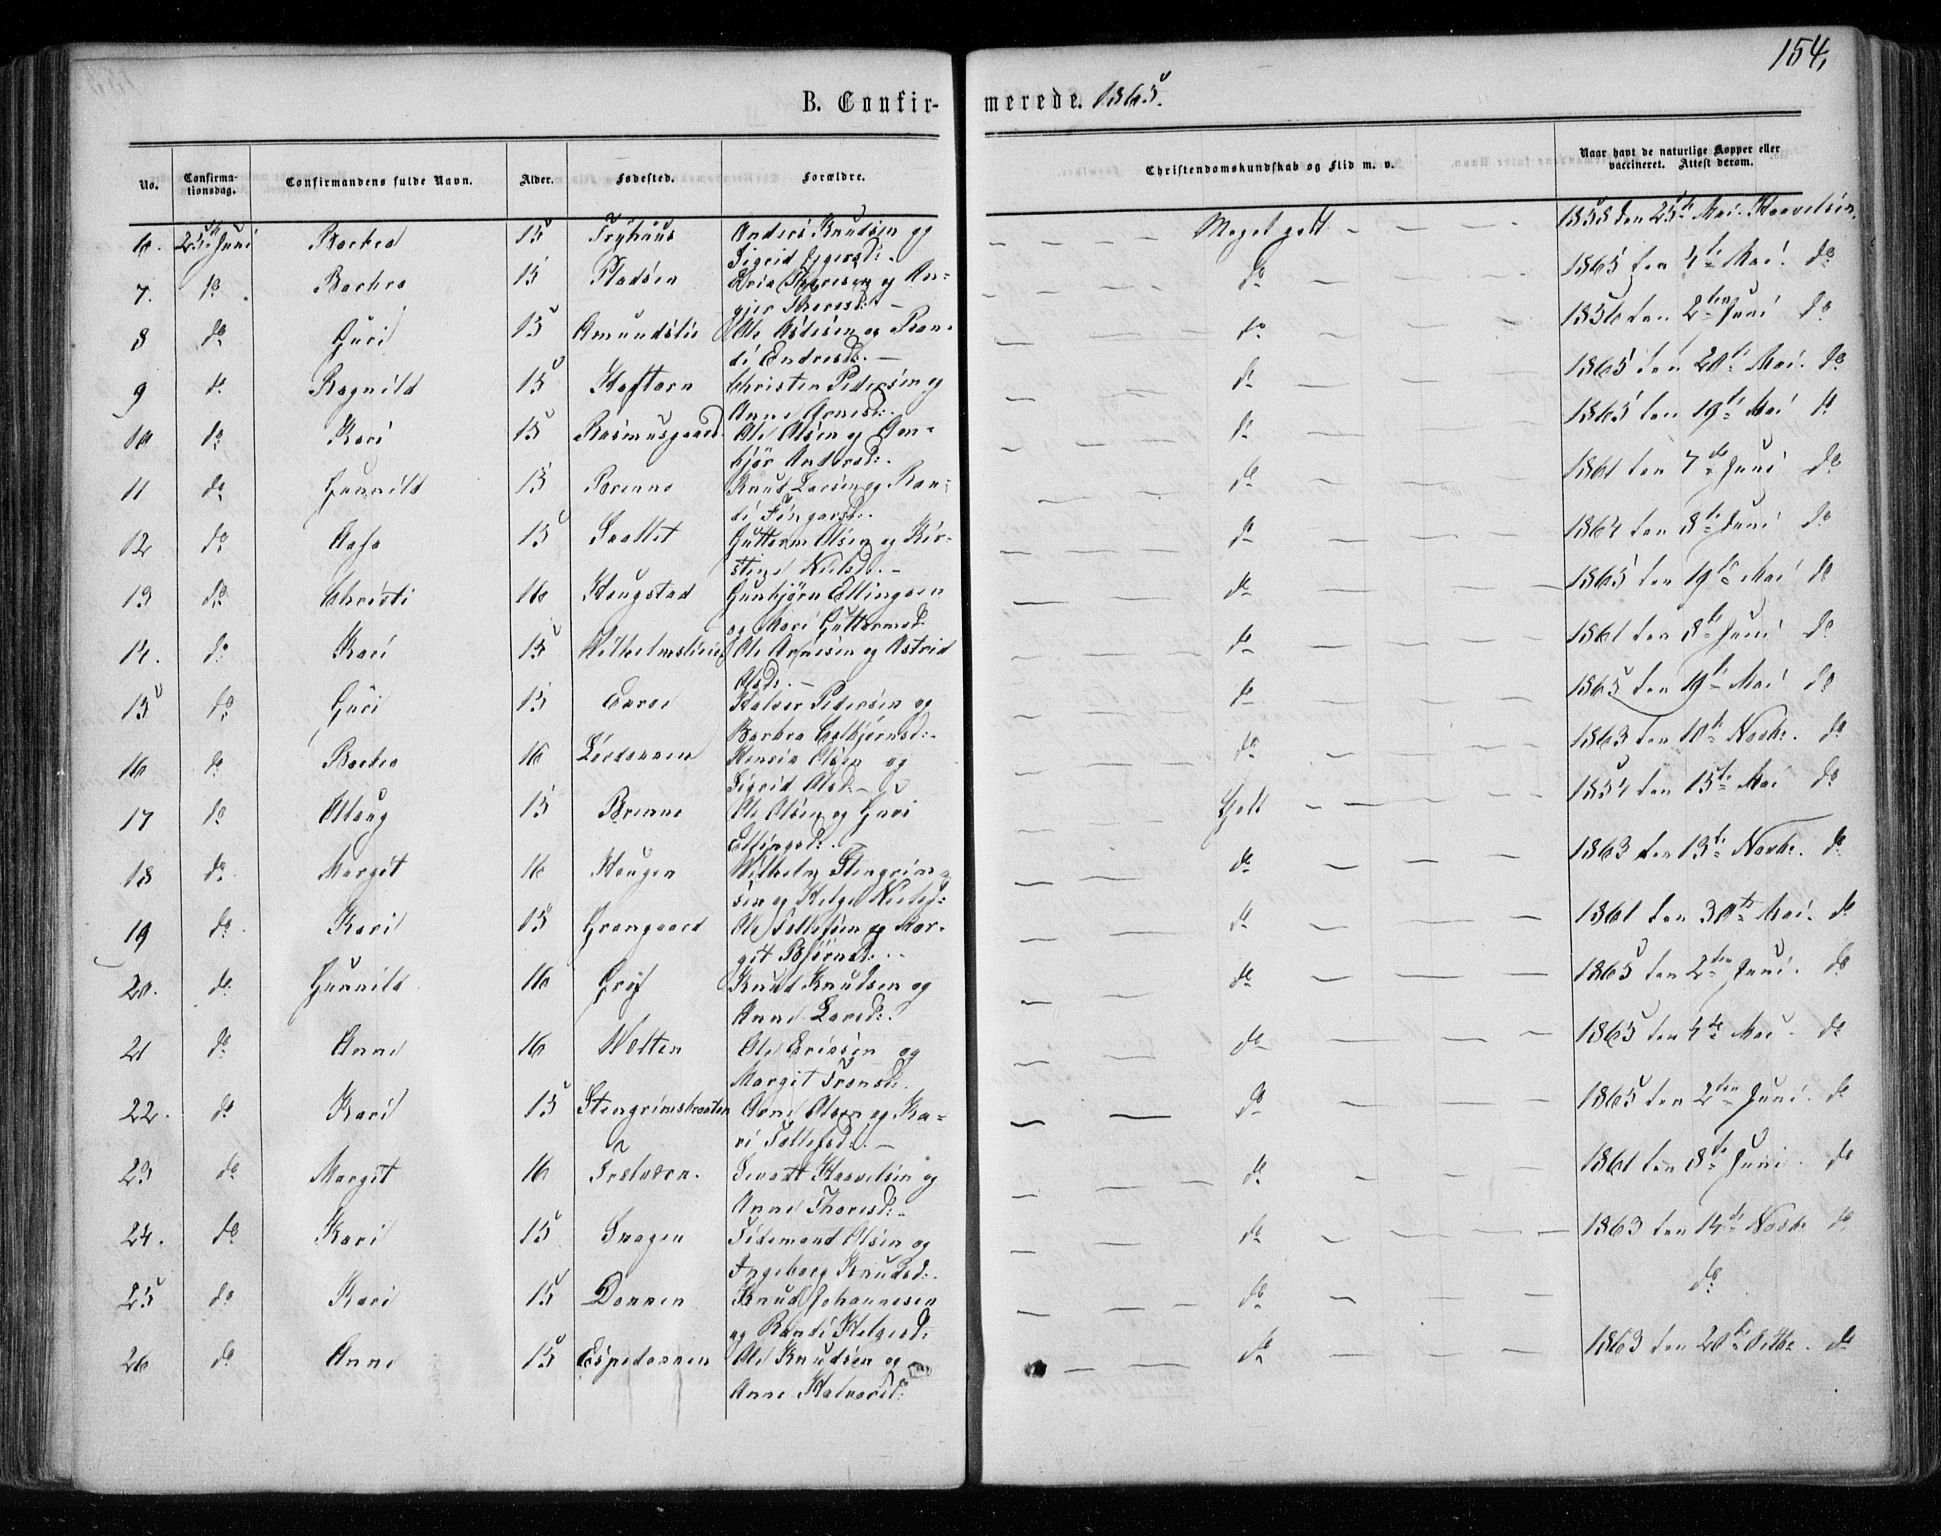 154,
B. Confirmerede. 1865.
No. Confirmationsdag. Confirmandens fulde Navn. Alder. Fødested. Forældre. Christendomskundskab og Flid m. v. Naar havt de naturlige Kopper eller vaccineret. Attest derom.
6. 25de Juni Barbra 15 Anders Knudsen og Meget godt 1858 den 25de Mai. Haavelsen
Sigrid
7. do Barbra 15 Pladsen do 1865 den 4de Mai. do
8 do Guri 15 Amundslie Ole og Ran- do 1856 den 2den Juni do
di Endresd:
9 do Ragnild 15 Haftorn Christen Pedersen og do 1865 den 20de Mai. do
Anne Arnesd:
10 do Kari 15 Rasmusgaard Ole Olsen og Gun- do 1865 den 19de Mai do
bjør Andersd:
11 do Gunnild 15 Brenna Knud Larsen og Ran- do 1861 den 7de Juni do
di
12 do Aase 15 Guttorm Olsen og Kir- do 1864 den 8de Juni do
stine Nielsd:
13 do Christi 16 Haugstad Gunbjørn Ellingsen do 1865 den 19de Mai do
og Mari Guttormsd:
14. do Kari 15 Wilhelmslien Ole Arnesen og Astrid do 1861 den 8de Juni do
Olsd:
15 do Guri 15 Halvor Pedersen og do 1865 den 19de Mai do
Barbra
16 do Barbra 16 Olsen og do 1863 den 10de Novbr. do
Sigrid Olsd:
17 do 15 Brenna Ole Olsen og Guri Godt 1854 den 15de Mai do
Ellingsd:
18 do Margit 16 Haugen Wilhelm Stengrim- do 1863 den 13de Novbr. do
sen og Helge Nielsd:
19 do Kari 15 Grangaard Ole Tollefsen og Mar- do 1861 den 30te Mai. do
git Bjørnsd:
20. do Gunnild 16 Knud Knudsen og do 1865 den 2den Juni. do
Anne Larsd:
21 do Anne 16 Ole Ericsen og do 1865 den 4de Mai. do
Margit Tronsd:
22. do Kari 15 Stengrimsbraaten Arne Olsen og Ka- do 1865 den 2den Juni. do
ri Tollefsd:
23 do Margit 16 Haavelsen og do 1861 den 8de Juni. do
Anne Thoresd:
24. do Kari 15 Tidemand Olsen og do 1863 den 14de Novbr do
Ingeborg Knudsd:
25 do Kari 15 Knud Johannesen do do
og Randi Helgesd:
26 do Anne 15 Ole Knudsen og do 1863 den 20de do
Anne Halvorsd: